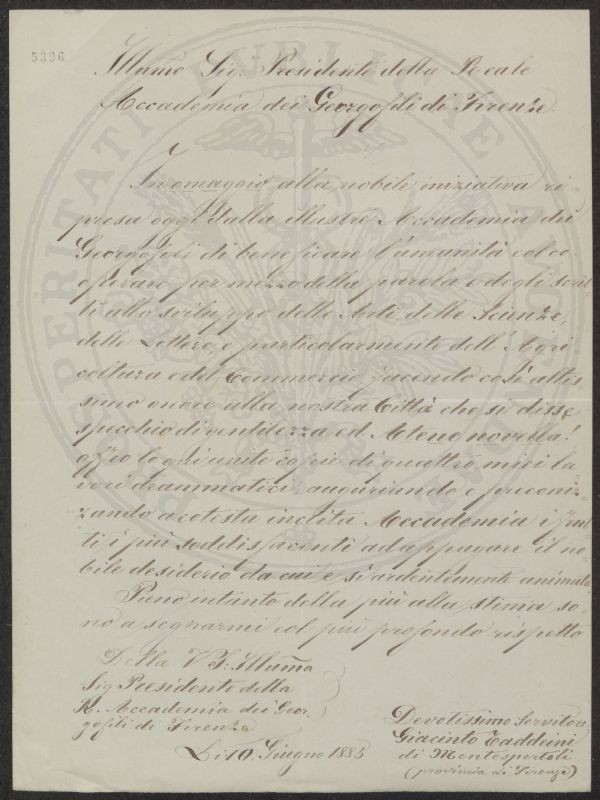 5396
Illumo Sig. Presidente della Reale
Accademia dei Georgofili di Firenze
In omaggio alla nobile iniziativa ri
presa oggi dalla illustre Accademia dei
Georgofili di beneficare l'umanità col co
operare per mezzo della parola e degli scrit
ti allo sviluppo delle Arti delle Scienze,
delle Lettere, e particolarmente dell'Agri
coltura e del Commercio, facendo così altis
simo onore alla nostra Città che si disse
specchio di gentilezza ed Atene novella!
offro le qui unite copie di quattro miei la
vori drammatici, augurando e preconiz
zando a cotesta inclita Accademia i frut
ti i più soddisfacenti ad appagare il no
bile desiderio da cui e si ardentemente animata
Pieno intanto della più alta stima so
no a segnarmi col più profondo rispetto
Della V. S. Illuma
Sig Presidente della
R. Accademia dei Geor-
gofili di Firenze
Li 10. Giugno 1885
Devotissimo Servitore
Giacinto Taddeini
di Montespertoli
(provincia di Firenze)
PROSPERITATI PUBLICAE AUGENDAE